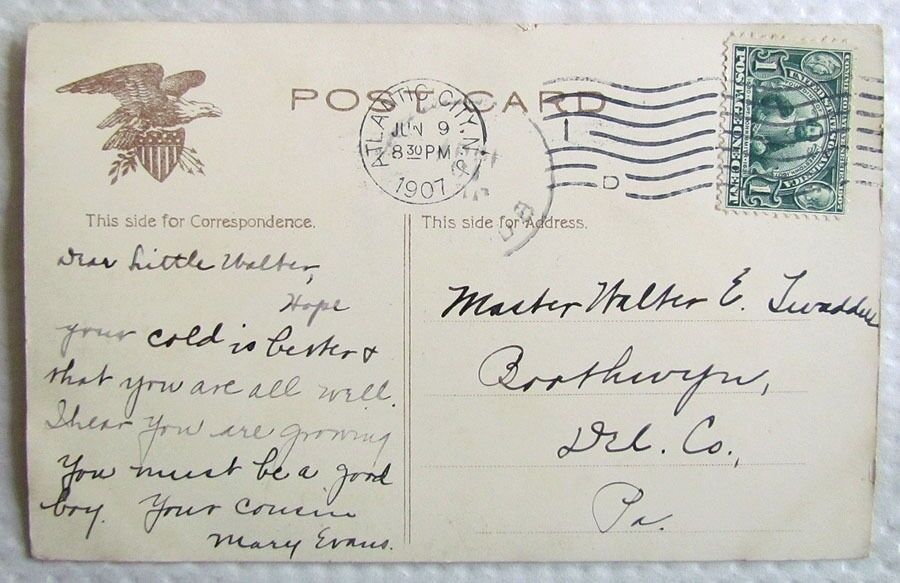 POST CARD
ATLANTIC CITY, N.J.
JUN 9
8 30 PM
1907
D
UNITED STATES OF AMERICA
1 POSTAGE ONE CENT 1
This side for Correspondence.
This side for Address.
Dear Little Walter,
Hope
your cold is better &
that you are all well.
I hear you are growing
You must be a good
boy. Your cousin
Mary Evans.
Master Walter E. Twaddell
Boothwyn,
Del. Co.,
Pa.